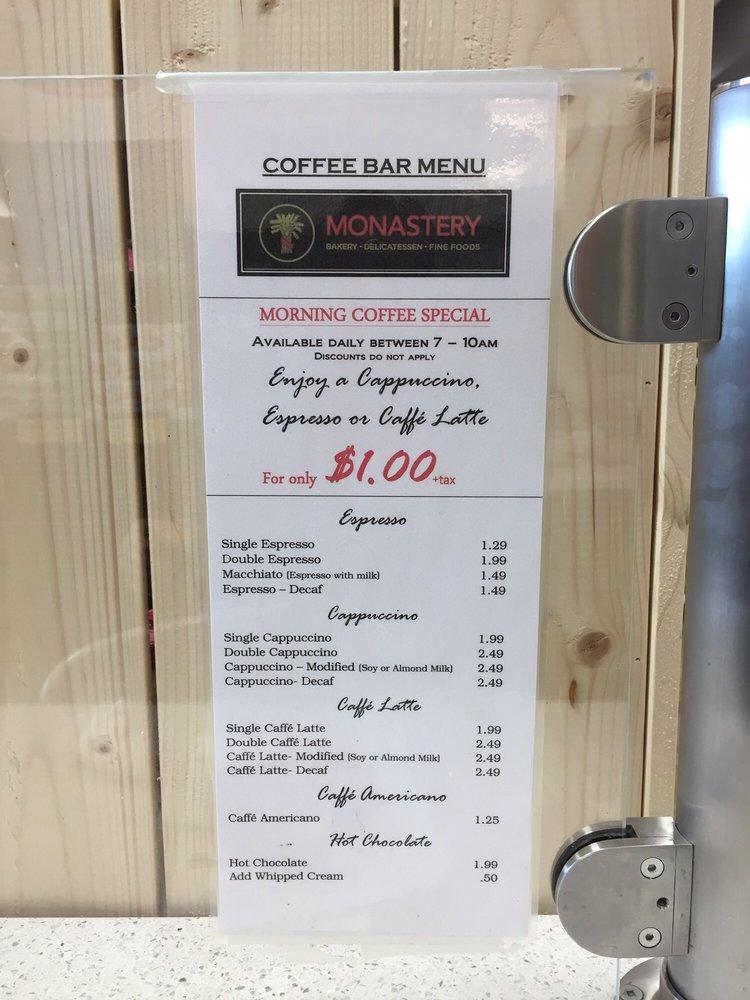 COFFEE BAR MENU
MONASTERY
BAKERY · DELICATESSEN · FINE FOODS
MORNING COFFEE SPECIAL
AVAILABLE DAILY BETWEEN 7 – 10AM
DISCOUNTS DO NOT APPLY
Enjoy a Cappuccino,
Espresso or Caffé Latte
For only $1.00 +tax
Espresso
Single Espresso 1.29
Double Espresso 1.99
Macchiato (Espresso with milk) 1.49
Espresso – Decaf 1.49
Cappuccino
Single Cappuccino 1.99
Double Cappuccino 2.49
Cappuccino – Modified (Soy or Almond Milk) 2.49
Cappuccino- Decaf 2.49
Caffé Latte
Single Caffé Latte 1.99
Double Caffé Latte 2.49
Caffé Latte- Modified (Soy or Almond Milk) 2.49
Caffé Latte- Decaf 2.49
Caffé Americano
Caffé Americano 1.25
Hot Chocolate
Hot Chocolate 1.99
Add Whipped Cream .50